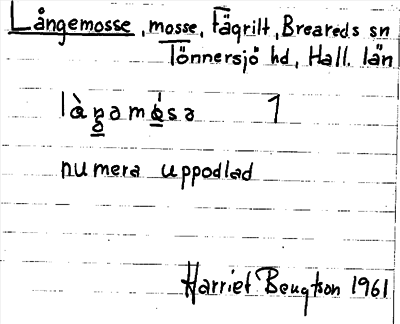 Långemosse, mosse, Fägrilt, Breareds sn
Tönnersjö hd, Hall. län
làŋəmósə 1
numera uppodlad
Harriet Bengtson 1961